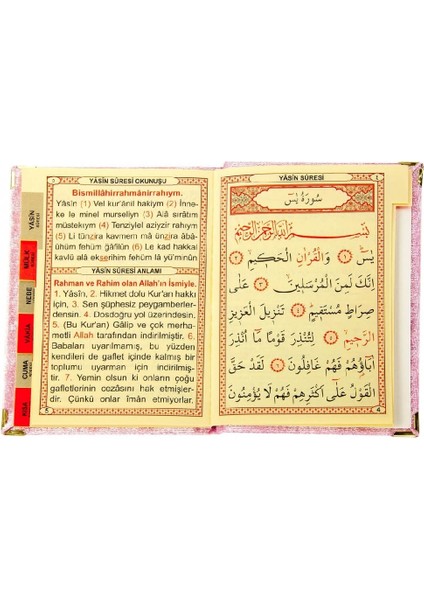 YÂSÎN SÛRESİ OKUNUŞU
Bismillâhirrahmânirrahıym.
Yâsîn (1) Vel kur'ânil hakiym (2) İnne-
ke le minel murseliyn (3) Alâ sırâtım
müstekıym (4) Tenziylel aziyzir rahıym
(5) Li tünzira kavmem mâ ünzira âbâ-
ühüm fehüm gâfilûn (6) Le kad hakkal
kavlü alâ ekserihim fehüm lâ yü'minûn
YÂSÎN SÛRESİ ANLAMI
Rahman ve Rahim olan Allah'ın İsmiyle.
1. Yâsîn, 2. Hikmet dolu Kur'an hakkı
için, 3. Sen şüphesiz peygamberler-
densin. 4. Dosdoğru yol üzerindesin.
5. (Bu Kur'an) Gâlip ve çok merha-
metli Allah tarafından indirilmiştir. 6.
Babaları uyarılmamış, bu yüzden
kendileri de gaflet içinde kalmış bir
toplumu uyarman için indirilmiş-
tir. 7. Yemin olsun ki onların çoğu
gafletlerinin cozâsını hak etmişler-
dir. Çünkü onlar îman etmiyorlar.
5
YÂSÎN
MÜLK
NEBE
VAKIA
CUMA
KISA
YÂSÎN SÛRESİ
سُورَةُ يٰسٓ
بِسْمِ اللّٰهِ الرَّحْمٰنِ الرَّحِيمِ
يٰسٓ ﴿١﴾ وَالْقُرْاٰنِ الْحَكِيمِ ﴿٢﴾
اِنَّكَ لَمِنَ الْمُرْسَلِينَ ﴿٣﴾ عَلٰى
صِرَاطٍ مُسْتَقِيمٍ ﴿٤﴾ تَنْزِيلَ الْعَزِيزِ
الرَّحِيمِ ﴿٥﴾ لِتُنْذِرَ قَوْمًا مَٓا اُنْذِرَ
اٰبَٓاؤُهُمْ فَهُمْ غَافِلُونَ ﴿٦﴾ لَقَدْ حَقَّ
الْقَوْلُ عَلٰٓى اَكْثَرِهِمْ فَهُمْ لَا يُؤْمِنُونَ
4